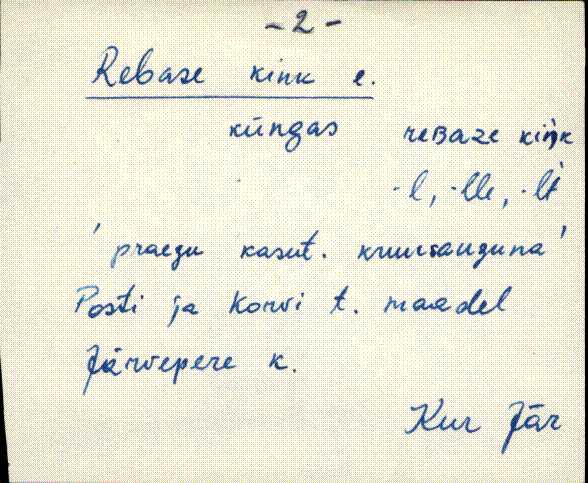 - 2 -
Rebase kink e.
küngas reBaze kiŋk
-l, -lle, -lt
'praegu kasut. kruusauguna'
Posti ja Korvi t. maadel
Järvepere k.
Kur Jär